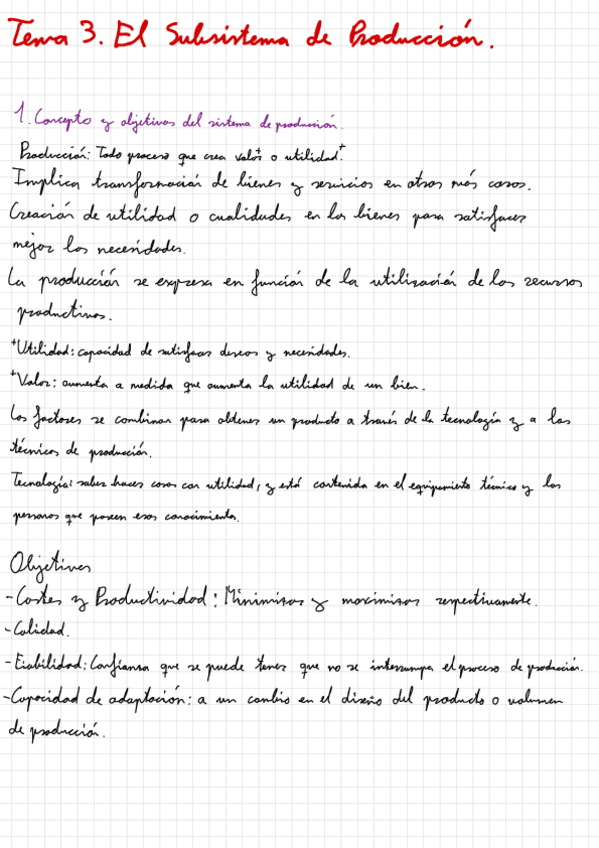 Tema 3. El Subsistema de Producción.
1. Concepto y objetivos del sistema de producción.
Producción: Todo proceso que crea valor+ o utilidad+.
Implica transformación de bienes y servicios en otras más cosas.
Creación de utilidad o cualidades en los bienes para satisfacer
mejor las necesidades.
La producción se expresa en función de la utilización de los recursos
productivos.
+Utilidad: capacidad de satisfacer deseos y necesidades.
+Valor: aumenta a medida que aumenta la utilidad de un bien.
Los factores se combinan para obtener un producto a través de la tecnología y a las
técnicas de producción.
Tecnología: saber hacer cosas con utilidad, y está contenida en el equipamiento técnico y las
personas que poseen esos conocimientos.
Objetivos
- Costes y Productividad: Minimizar y maximizar respectivamente.
- Calidad.
- Fiabilidad: Confianza que se puede tener que no se interrumpa el proceso de producción.
- Capacidad de adaptación: a un cambio en el diseño del producto o volumen
de producción.